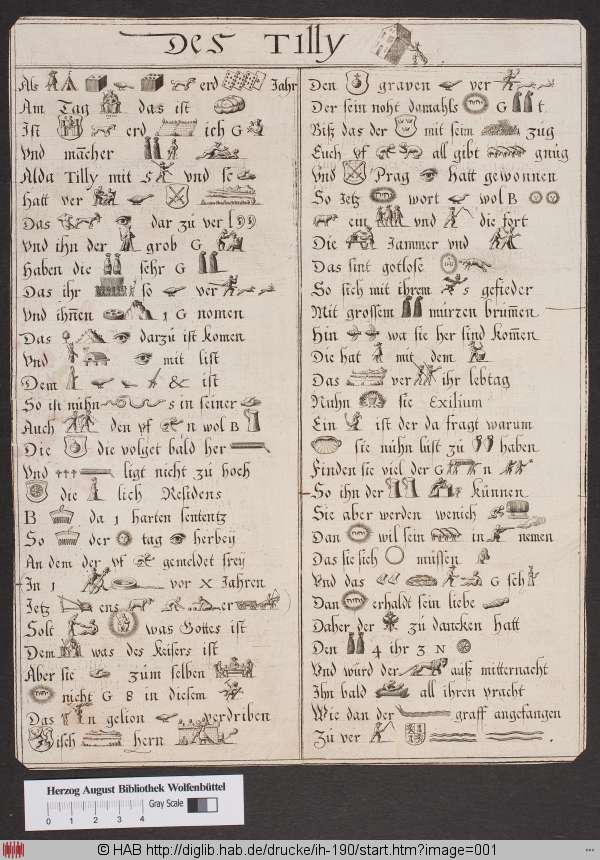 Des Tilly
Als erd Jahr
Am Tag das ist
Ist erd ich G
Vnd mācher
Alda Tilly mit 5 vnd se
Hatt ver
Das dar zu verl
Vnd ihn der grob G
Haben die sehr G
Das ihr so ver
Vnd ihnen 1 G nomen
Das darzu ist komen
Vnd mit list
Dem & ist
So ist nuhn s in seiner
Auch den pf n wol B
Die die volget bald her
Vnd ligt nicht zu hoch
die lich Residens
B da 1 harten sententz
So der tag herbey
An dem der pf gemeldet frey
In 1 vor X Jahren
Jetz ens er
Solt was Gottes ist
Dem was des Keisers ist
Aber sie zum selben
nicht G 8 in diesem
Das n gelion verdriben
isch hern
Den graven ver
Der sein noht damahls G t
Biß das der mit seim zug
Euch pf all gibt gnug
Vnd Prag hatt gewonnen
So Jetz wort wol B
ein vnd die fort
Die Jammer vnd
Das sint gotlose
So sich mit ihrem s gefieder
Mit grossem murzen brumen
Hin wa sie her sind komen
Die hat mit dem
Das ver ihr lebtag
Nuhn sie Exilium
Ein ist der da fragt warum
sie nuhn lust zu haben
Finden sie viel der G n
So ihn der kunnen
Sie aber werden wenich
Dan wil sein in nemen
Das sie sich mussen
Vnd das G sch
Dan erhaldt sein liebe
Daher der zu dancken hatt
Den 4 ihr 3 N
Vnd wurd der auß mitternacht
Ihn bald all ihren pracht
Wie dan der graff angefangen
Zu ver
Herzog August Bibliothek Wolfenbüttel
0 1 2 3 4 Gray Scale
© HAB http://diglib.hab.de/drucke/ih-190/start.htm?image=001